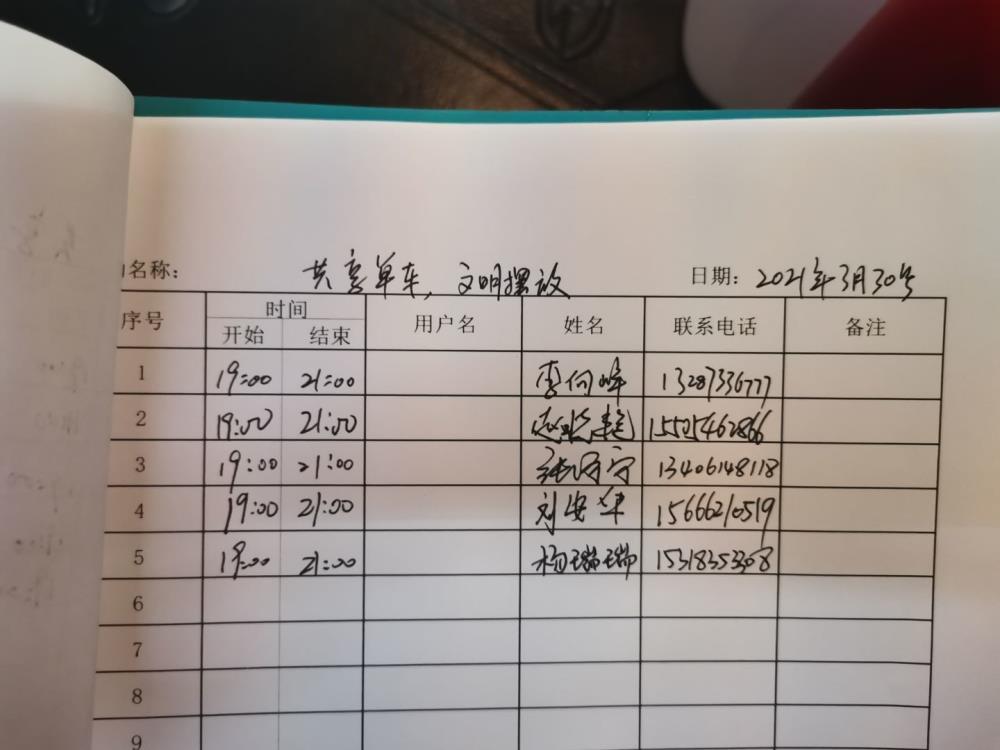 名称: 共享单车,文明摆放 日期: 2021年3月30号
序号 时间 用户名 姓名 联系电话 备注
开始 结束
1 19:00 21:00 李向峰 13287336777
2 19:00 21:00 15525462866
3 19:00 21:00 13406148118
4 19:00 21:00 刘安华 15666210519
5 19:00 21:00 杨瑞瑞 15318353308
6
7
8
9